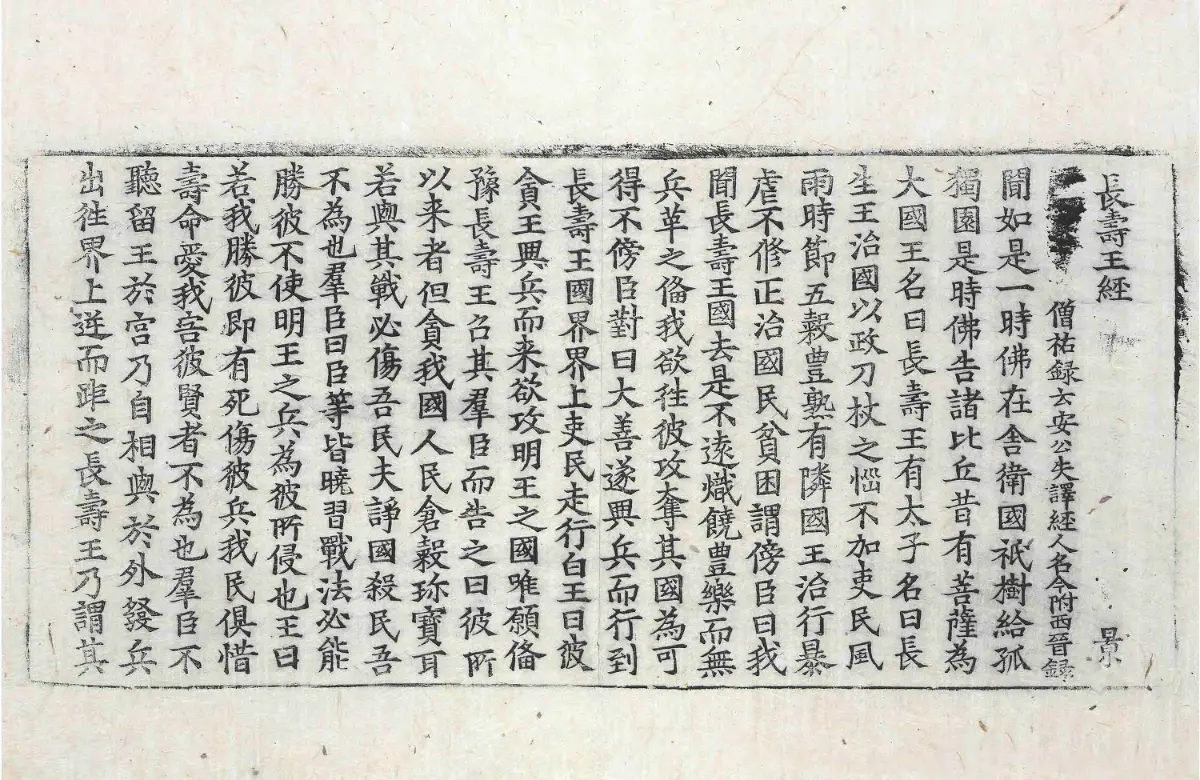 長壽王經 景
僧祐録云安公失譯經人名今附西晉録
聞如是一時佛在舍衛國祇樹給孤
獨園是時佛告諸比丘昔有菩薩為
大國王名曰長壽王有太子名曰長
生王治國以政刀杖之惱不加吏民風
雨時節五穀豊熟有隣國王治行暴
虐不修正治國民貧困謂傍臣曰我
聞長壽王國去是不遠熾饒豊樂而無
兵革之俻我欲往彼攻奪其國為可
得不傍臣對曰大善遂興兵而行到
長壽王國界界上吏民走行白王曰彼
貪王興兵而来欲攻明王之國唯願俻
豫長壽王召其羣臣而告之曰彼所
以来者但貪我國人民倉穀珎寶耳
若與其戰必傷吾民夫諍國殺民吾
不為也羣臣曰臣等皆曉習戰法必能
勝彼不使明王之兵為彼所侵也王曰
若我勝彼即有死傷彼兵我民俱惜
壽命愛我害彼賢者不為也羣臣不
聽留王於宫乃自相與於外發兵
出往界上逆而距之長壽王乃謂其